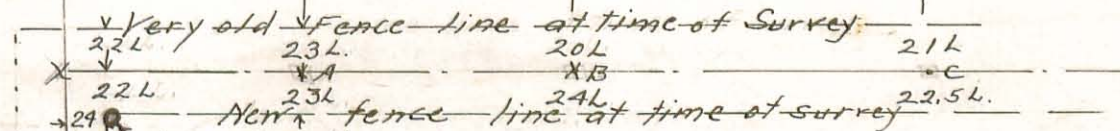 Very old Fence line at time of Survey
22L 23L. 20L 21L
X A XB C
22L 23L 24L 22.5L.
24 New fence line at time of survey